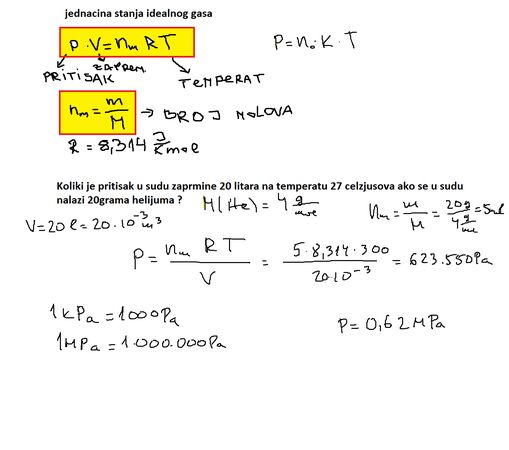 jednacina stanja idealnog gasa
P·V=nm RT
P=n₀·K·T
PRITISAK ZAPREM. TEMPERAT
nm = m/M → BROJ MOLOVA
R = 8,314 J/Kmol
Koliki je pritisak u sudu zaprmine 20 litara na temperatu 27 celzjusova ako se u sudu
nalazi 20grama helijuma ?
M(He) = 4 g/mol
nm = m/M = 20g / 4 g/mol = 5mol
V=20l=20·10⁻³m³
P = nm RT / V = 5·8,314·300 / 20·10⁻³ = 623.550Pa
1kPa=1000Pa
1MPa=1.000.000Pa
P=0,62MPa